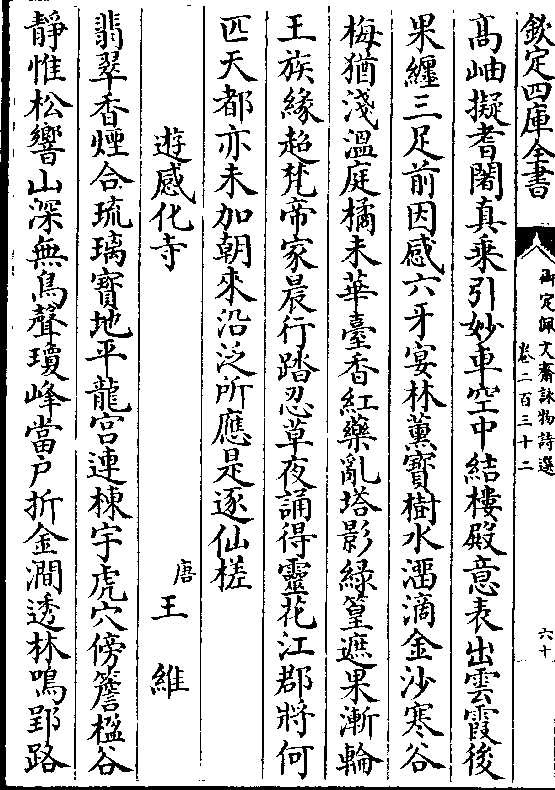 欽定四庫全書
御定佩文齋詠物詩選
卷二百三十二
六十
高岫擬耆闍真乗引妙車空中結樓殿意表出雲霞後
果纒三足前因感六牙宴林薰寳樹水溜滴金沙寒谷
梅猶淺溫庭橘未華臺香紅藥亂塔影緑篁遮果漸輪
王族緣超梵帝家晨行踏忍草夜誦得靈花江郡將何
匹天都亦未加朝來沿泛所應是逐仙槎
遊感化寺
唐王維
翡翠香煙合琉璃寳地平龍宫連棟宇虎穴傍簷楹谷
靜惟松響山深無鳥聲瓊峰當户折金澗透林鳴郢路